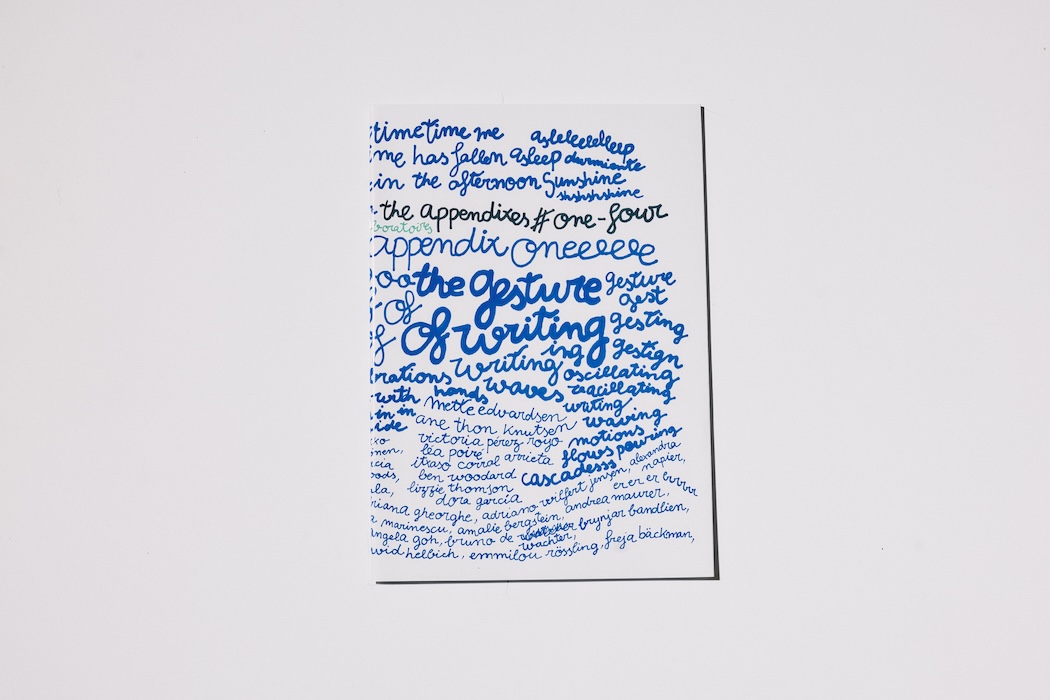 timetime me asleleelelleep
me has fallen asleep durmiente
in the afternoon sunshine
shshshshine
the appendixes # one-four
boratoires
appendix oneeeeee
oo the gesture gesture
of gest
of writing gesting
f writing ing gestign
brations waves oscillating
with hands vacillating
in in mette edvardsen writing
ide ane thon knutsen waving
kko victoria pérez royo motions
nen, léa poiré flows pouring
cia itxaso corral arrieta cascadesss
oods, ben woodard
la, lizzie thomson
dora garcía
riana gheorghe, adriano wilfert jensen, alexandra napier,
er er er brrrrr
a marinescu, amalie bergstein, andrea maurer,
angela goh, bruno de wachter, brynjar bandlien,
wid helbich, emmilou rössling, freja bäckman,